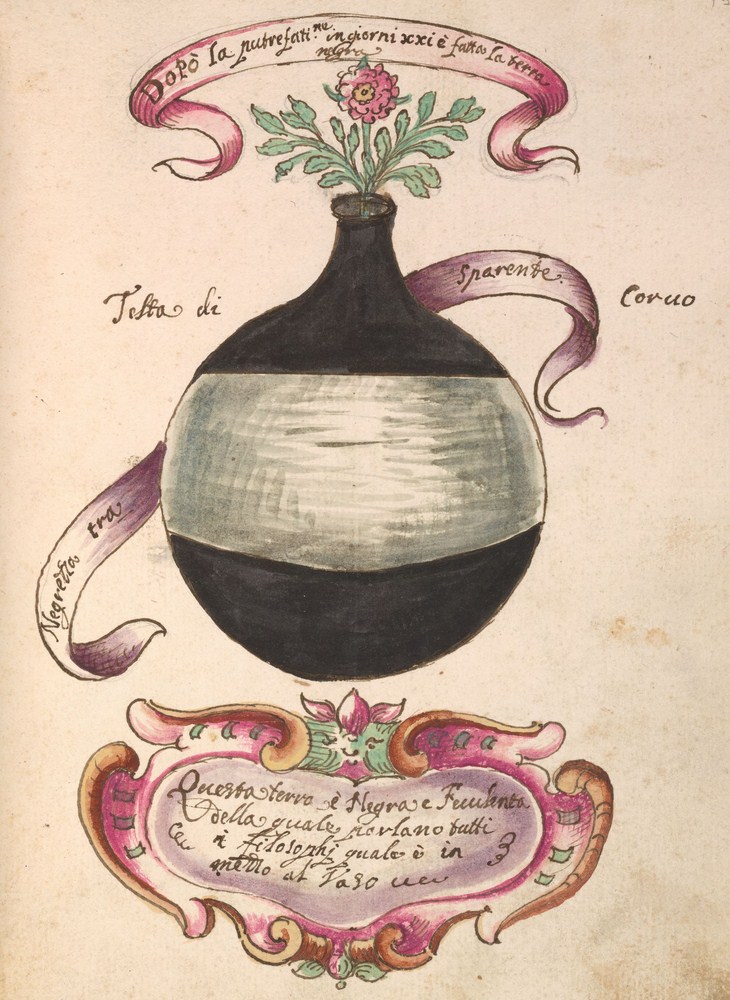 Dopò la putrefati.ne in giorni xxi è fatta la terra
negra
Testa di
sparente.
Coruo
Negretta tra
Questa terra è Negra e Feculenta
della quale parlano tutti
i filosophi quale è in
mezzo al Vaso